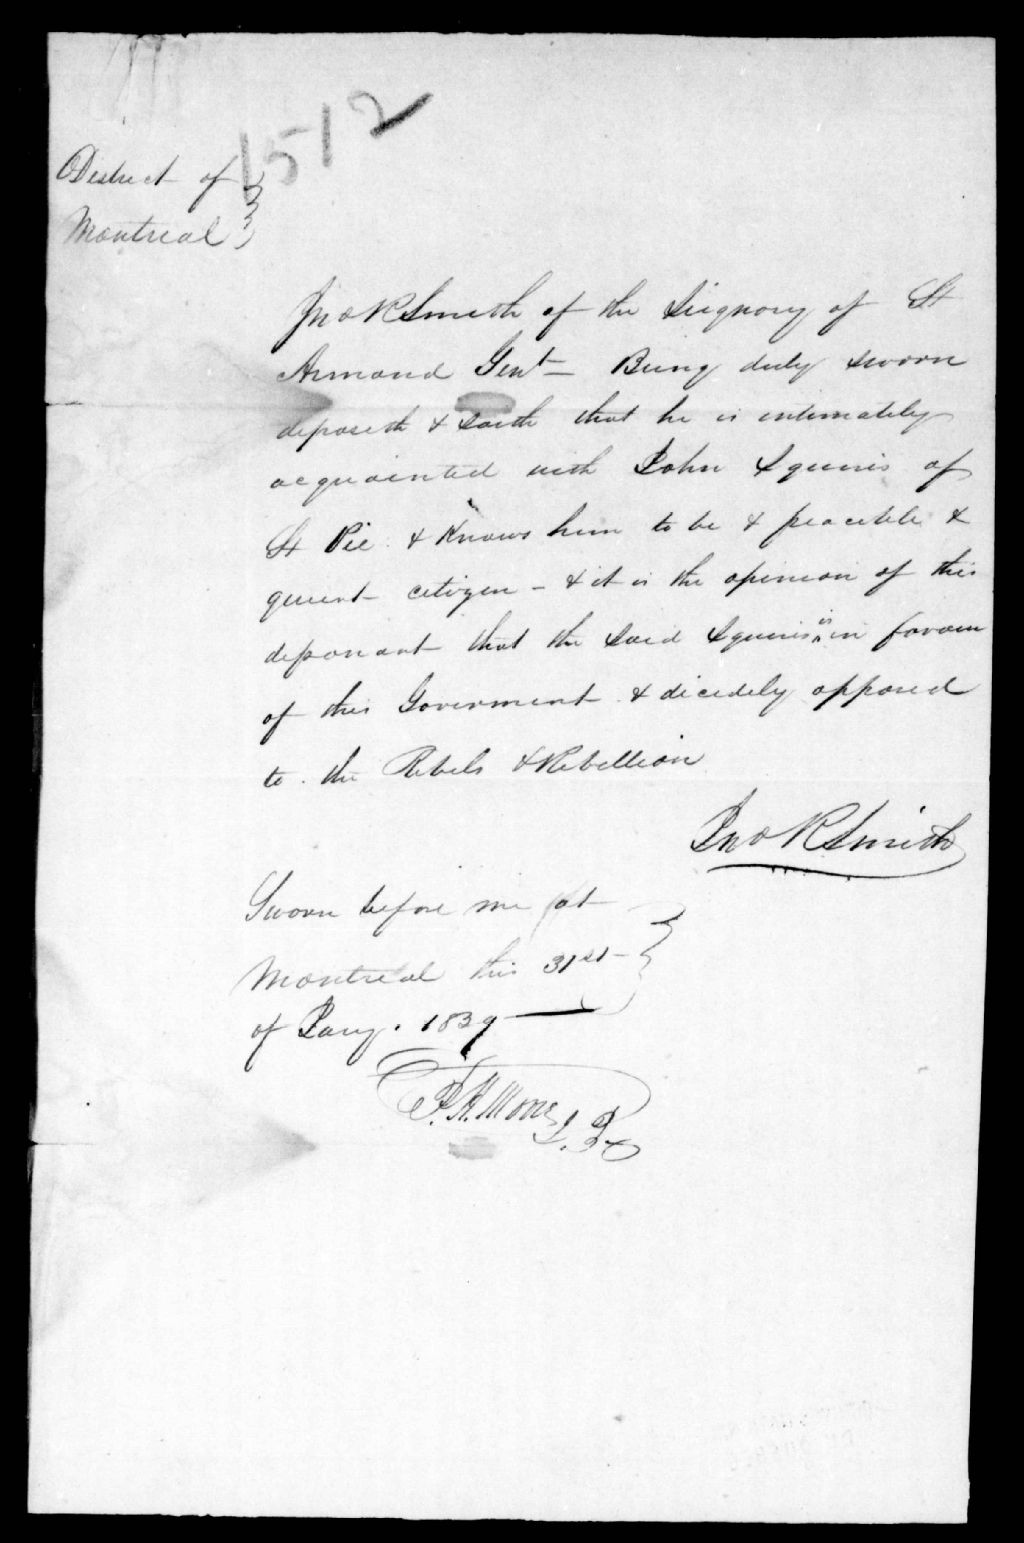 1512
District of
Montreal
Jno R Smith of the Siegnory of St
Armand Gent - Being duly sworn
deposeth & saith that he is intimately
acquainted with John Squires of
St Pie & Knows him to be & peacible &
quient citizen - & it is the opinion of this
deponant that the said Squires is in favour
of this Goverment & dicedely opposed
to the Rebels & Rebellion
Jno R Smith
Sworn before me at
Montreal this 31st
of Jany. 1839
J.P.